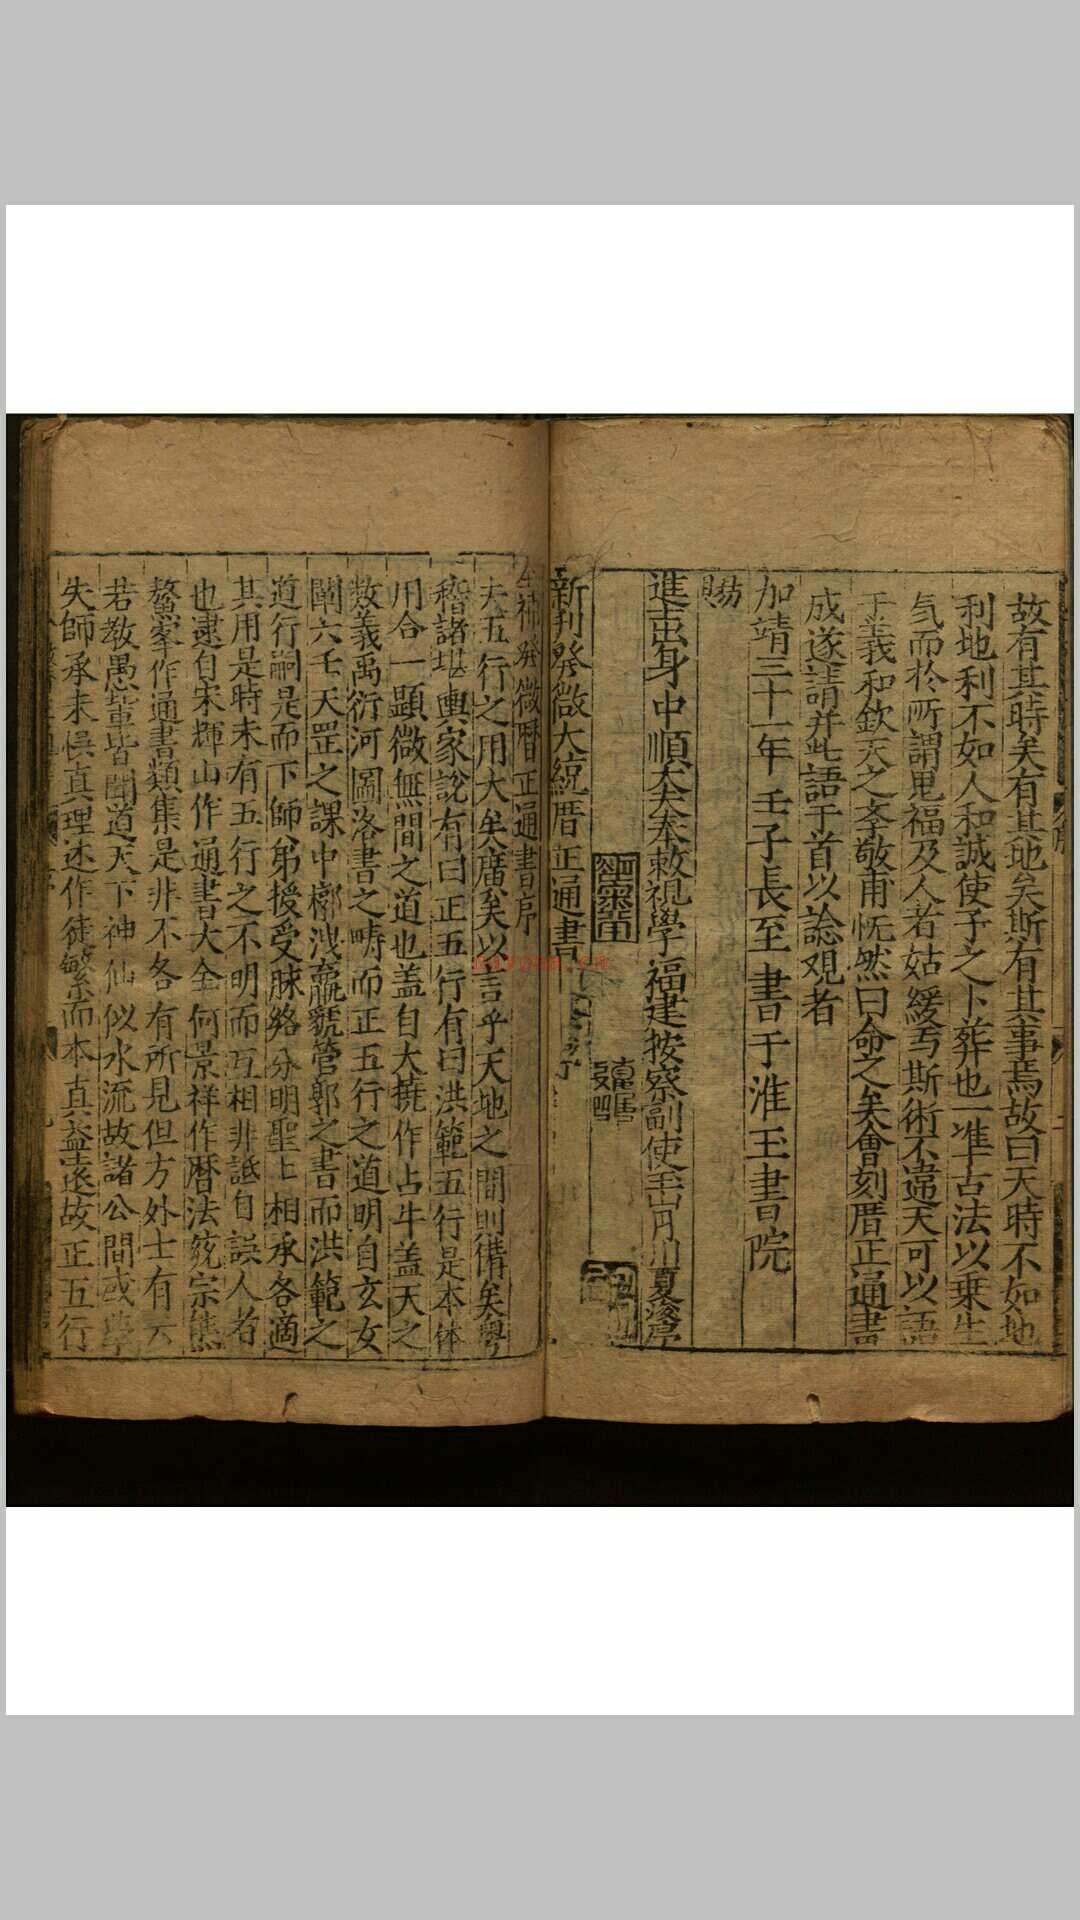 故有其時矣有其地矣斯有其事焉故曰天時不如地
利地利不如人和誠使予之卜葬也一准古法以乗生
気而於所謂鬼福及人者姑緩焉斯術不違天可以語
于義和欽天之李敬甫忻然曰命之矣會刻厝正通書
成遂請并此語于首以諗观者
加靖三十一年壬子長至書于淮王書院
賜
進士出身中順大夫奉敕視學福建按察副使玉山月川夏浚序
新刊發微大統厝正通書
微曆正通書序
夫五行之用大矣廣矣以言乎天地之間則備矣學
稽諸堪輿家說有曰正五行有曰洪範五行是本体
用合一顕微無間之道也盖自大撓作占斗盖天之
数義禹衍河圖洛書之疇而正五行之道明自玄女
闡六壬天罡之課中槨洩龐號管郭之書而洪範之
道行嗣是而下師弟授受脉絡分明聖上相承各適
其用是時未有五行之不明而互相非詆自誤人者
也逮自宋輝山作通書大全何景祥作曆法統宗熊
鰲峯作通書類集是非不各有所見但方外士有云
若教愚輩皆聞道天下神仙似水流故諸公間或學
失師承未惧真理述作徒繁而本真益遠故正五行
noyona.cn